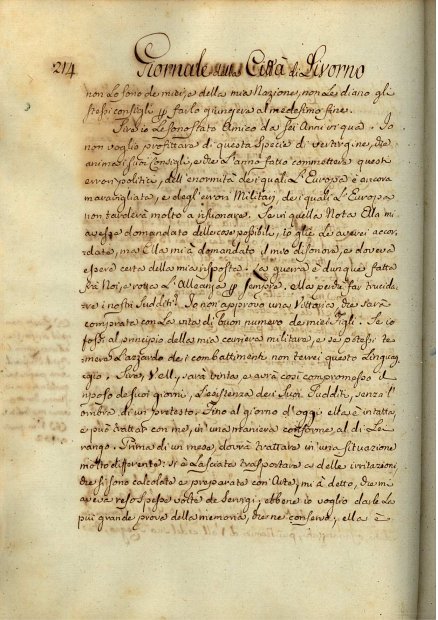 214 Giornale della Città di Livorno
non Lo sono de miei, e della mia Nazione, non Le diano gli
stessi consigli per farlo giungere al medesimo fine.
Sire io Le sono stato Amico da sei Anni in quà. Io
non voglio profittare di questa specie di vertigine, che
anima i suoi Consigli, e che L'anno fatto commettere questi
errori politici, dell'enormità dei quali L'Europa è ancora
maravigliata, e degli errori Militari, dei quali L'Europa
non tarderà molto a risuonare. Se in quella Nota Ella mi
avesse domandato delle cose possibili, io glie Le averei accor-
date, ma Ella mi à domandato il mio disonore, e doveva
essere certa della mia risposta. La guerra è dunque fatta
frà Noi, e rotta L'Alleanza per sempre. Ma perchè far trucida-
re i nostri Sudditi? Io non approvo una Vittoria, che sarà
comprata con La vita di buon numero de miei Figli. Se io
fossi al principio della mia carriera militare, e se potessi te-
mere L'azzardo dei combattimenti, non terrei questo Linguag-
gio. Sire, sarà vinta, e avrà così compromesso il
riposo de suoi giorni, L'esistenza dei Suoi Sudditi, senza l'
ombra di un pretesto. Fino al giorno d'oggi ella è intatta,
e può trattar con me, in una maniera conforme al di Lei
rango. Prima di un mese, dovrà trattare in una situazione
molto differente: si è Lasciata trasportare a delle irritazioni,
che si sono calcolate e preparate con Arte, mi à detto, che mi
aveva reso spesse volte de Servigi; ebbene io voglio darle La
più grande prova della memoria, che ne conservo; ella è